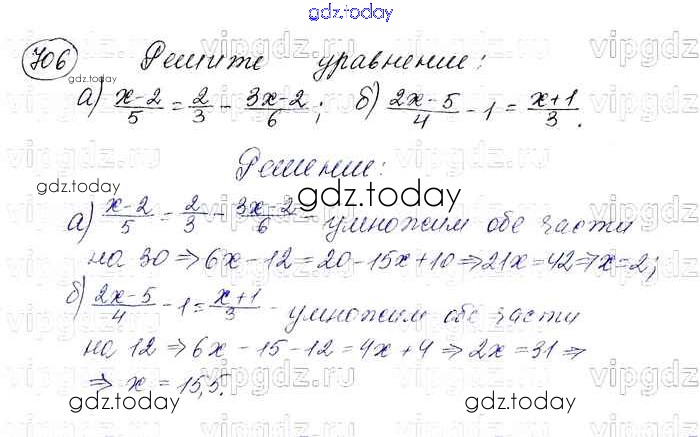 gdz.today
706 Решите уравнение:
gdz.today
а) x-2/5 = 2/3 - 3x-2/6; б) 2x-5/4 - 1 = x+1/3.
Решение:
gdz.today
gdz.today
а) x-2/5 = 2/3 - 3x-2/6 - умножим обе части
на 30 ⇒ 6x - 12 = 20 - 15x + 10 ⇒ 21x = 42 ⇒ x = 2;
б) 2x-5/4 - 1 = x+1/3 - умножим обе части
на 12 ⇒ 6x - 15 - 12 = 4x + 4 ⇒ 2x = 31 ⇒
⇒ x = 15,5.
gdz.today
gdz.today